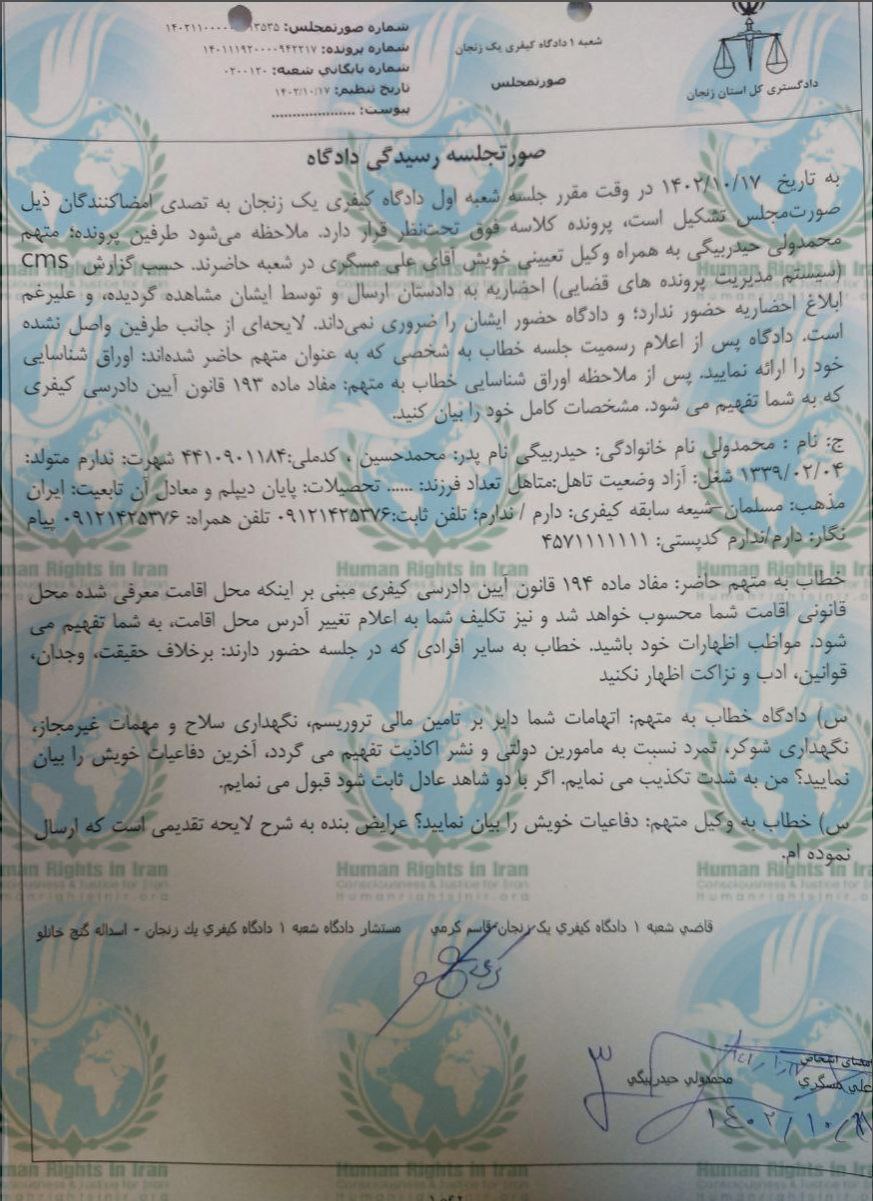 دادگستری کل استان زنجان
شعبه ۱ دادگاه کیفری یک زنجان
صورتمجلس
شماره صورتمجلس:
شماره پرونده: ۱۴۰۱۱۱۹۲۰۰۰۰۹۴۲۲۱۷
شماره بایگانی شعبه: ۰۲۰۰۱۲۰
تاریخ تنظیم: ۱۴۰۲/۱۰/۱۷
پیوست: ....................
صورتجلسه رسیدگی دادگاه
به تاریخ ۱۴۰۲/۱۰/۱۷ در وقت مقرر جلسه شعبه اول دادگاه کیفری یک زنجان به تصدی امضاکنندگان ذیل
صورت‌مجلس تشکیل است، پرونده کلاسه فوق تحت‌نظر قرار دارد. ملاحظه می‌شود طرفین پرونده؛ متهم
محمدولی حیدربیگی به همراه وکیل تعیینی خویش آقای علی مسگری در شعبه حاضرند. حسب گزارش cms
(سیستم مدیریت پرونده های قضایی) احضاریه به دادستان ارسال و توسط ایشان مشاهده گردیده، و علیرغم
ابلاغ احضاریه حضور ندارد؛ و دادگاه حضور ایشان را ضروری نمی‌داند. لایحه‌ای از جانب طرفین واصل نشده
است. دادگاه پس از اعلام رسمیت جلسه خطاب به شخصی که به عنوان متهم حاضر شده‌اند: اوراق شناسایی
خود را ارائه نمایید. پس از ملاحظه اوراق شناسایی خطاب به متهم: مفاد ماده ۱۹۳ قانون آیین دادرسی کیفری
که به شما تفهیم می شود. مشخصات کامل خود را بیان کنید.
ج: نام : محمدولی نام خانوادگی: حیدربیگی نام پدر: محمدحسین ، کدملی:۴۴۱۰۹۰۱۱۸۴ شهرت: ندارم متولد:
۱۳۳۹/۰۲/۰۴ شغل: آزاد وضعیت تاهل:متاهل تعداد فرزند: ...... تحصیلات: پایان دیپلم و معادل آن تابعیت: ایران
مذهب: مسلمان-شیعه سابقه کیفری: دارم / ندارم؛ تلفن ثابت:۰۹۱۲۱۴۲۵۳۷۶ تلفن همراه: ۰۹۱۲۱۴۲۵۳۷۶ پیام
نگار: دارم/ندارم کدپستی: ۴۵۷۱۱۱۱۱۱۱
خطاب به متهم حاضر: مفاد ماده ۱۹۴ قانون آیین دادرسی کیفری مبنی بر اینکه محل اقامت معرفی شده محل
قانونی اقامت شما محسوب خواهد شد و نیز تکلیف شما به اعلام تغییر آدرس محل اقامت، به شما تفهیم می
شود. مواظب اظهارات خود باشید. خطاب به سایر افرادی که در جلسه حضور دارند: برخلاف حقیقت، وجدان،
قوانین، ادب و نزاکت اظهار نکنید
س) دادگاه خطاب به متهم: اتهامات شما دایر بر تامین مالی تروریسم، نگهداری سلاح و مهمات غیرمجاز،
نگهداری شوکر، تمرد نسبت به مامورین دولتی و نشر اکاذیت تفهیم می گردد، آخرین دفاعیات خویش را بیان
نمایید؟ من به شدت تکذیب می نمایم. اگر با دو شاهد عادل ثابت شود قبول می نمایم.
س) خطاب به وکیل متهم: دفاعیات خویش را بیان نمایید؟ عرایض بنده به شرح لایحه تقدیمی است که ارسال
نموده ام.
قاضي شعبه ۱ دادگاه كيفري يک زنجان قاسم كرمي مستشار دادگاه شعبه ۱ دادگاه كيفري يك زنجان - اسداله گنج خانلو
امضای اشخاص
علي مسگري محمدولي حيدربيگي
۱۴۰۲/۱۰/
Human Rights in Iran
Consciousness & Justice for Iran
humanrightsinir.org